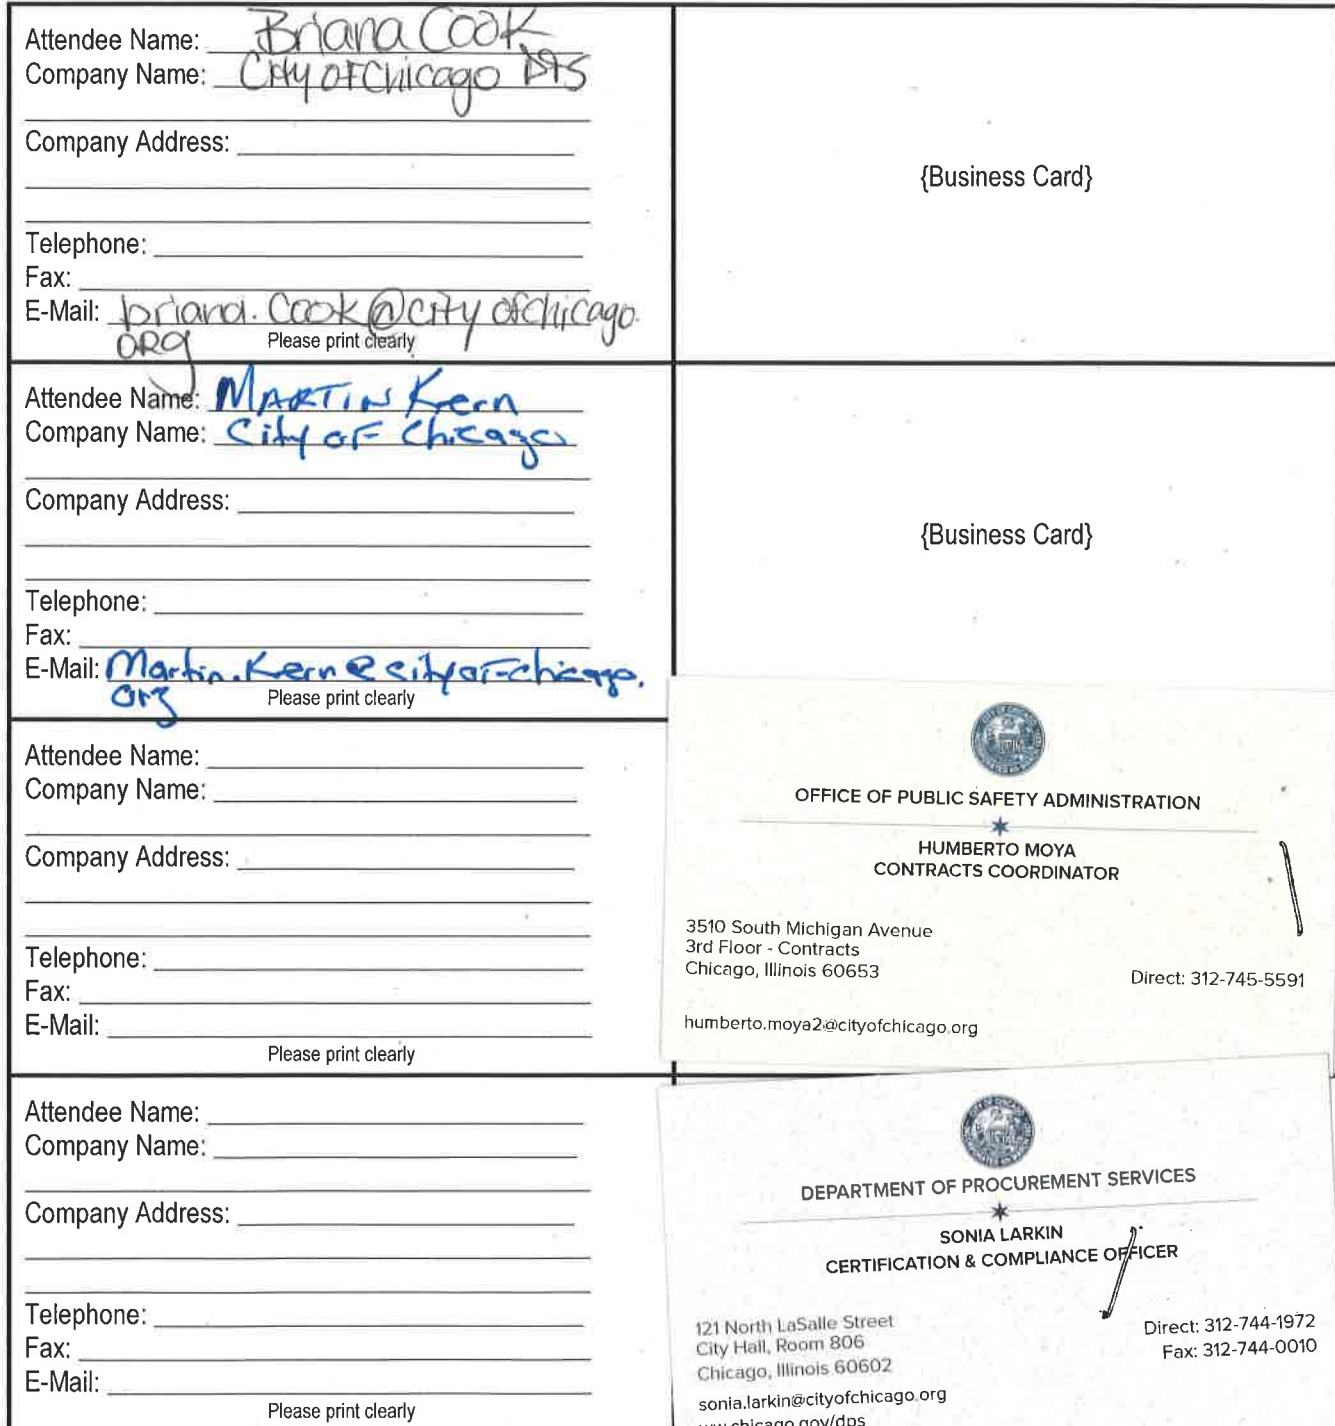 Attendee Name: Briana Cook
Company Name: City of Chicago DPS
Company Address:
Telephone:
Fax:
E-Mail: briana.cook@cityofchicago.
org
Please print clearly
{Business Card}
Attendee Name: MARTIN Kern
Company Name: City of Chicago
Company Address:
Telephone:
Fax:
E-Mail: Martin.Kern@cityofchicago.
org
Please print clearly
{Business Card}
Attendee Name:
Company Name:
Company Address:
Telephone:
Fax:
E-Mail:
Please print clearly
OFFICE OF PUBLIC SAFETY ADMINISTRATION
HUMBERTO MOYA
CONTRACTS COORDINATOR
3510 South Michigan Avenue
3rd Floor - Contracts
Chicago, Illinois 60653
Direct: 312-745-5591
humberto.moya2@cityofchicago.org
Attendee Name:
Company Name:
Company Address:
Telephone:
Fax:
E-Mail:
Please print clearly
DEPARTMENT OF PROCUREMENT SERVICES
SONIA LARKIN
CERTIFICATION & COMPLIANCE OFFICER
121 North LaSalle Street
City Hall, Room 806
Chicago, Illinois 60602
Direct: 312-744-1972
Fax: 312-744-0010
sonia.larkin@cityofchicago.org